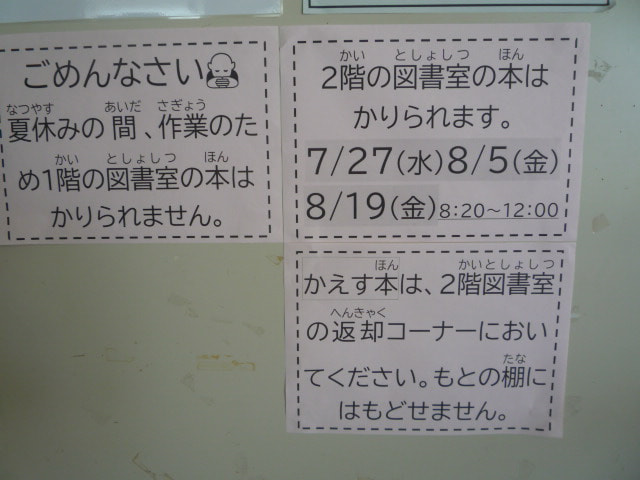 ごめんなさい
なつやす あいだ さぎょう
夏休みの間、作業のた
かい としょしつ ほん
め1階の図書室の本は
かりられません。
かい としょしつ ほん
2階の図書室の本は
かりられます。
7/27(水)8/5(金)
8/19(金)8:20~12:00
ほん かいとしょしつ
かえす本は、2階図書室
へんきゃく
の返却コーナーにおい
てください。もとの棚に
たな
はもどせません。